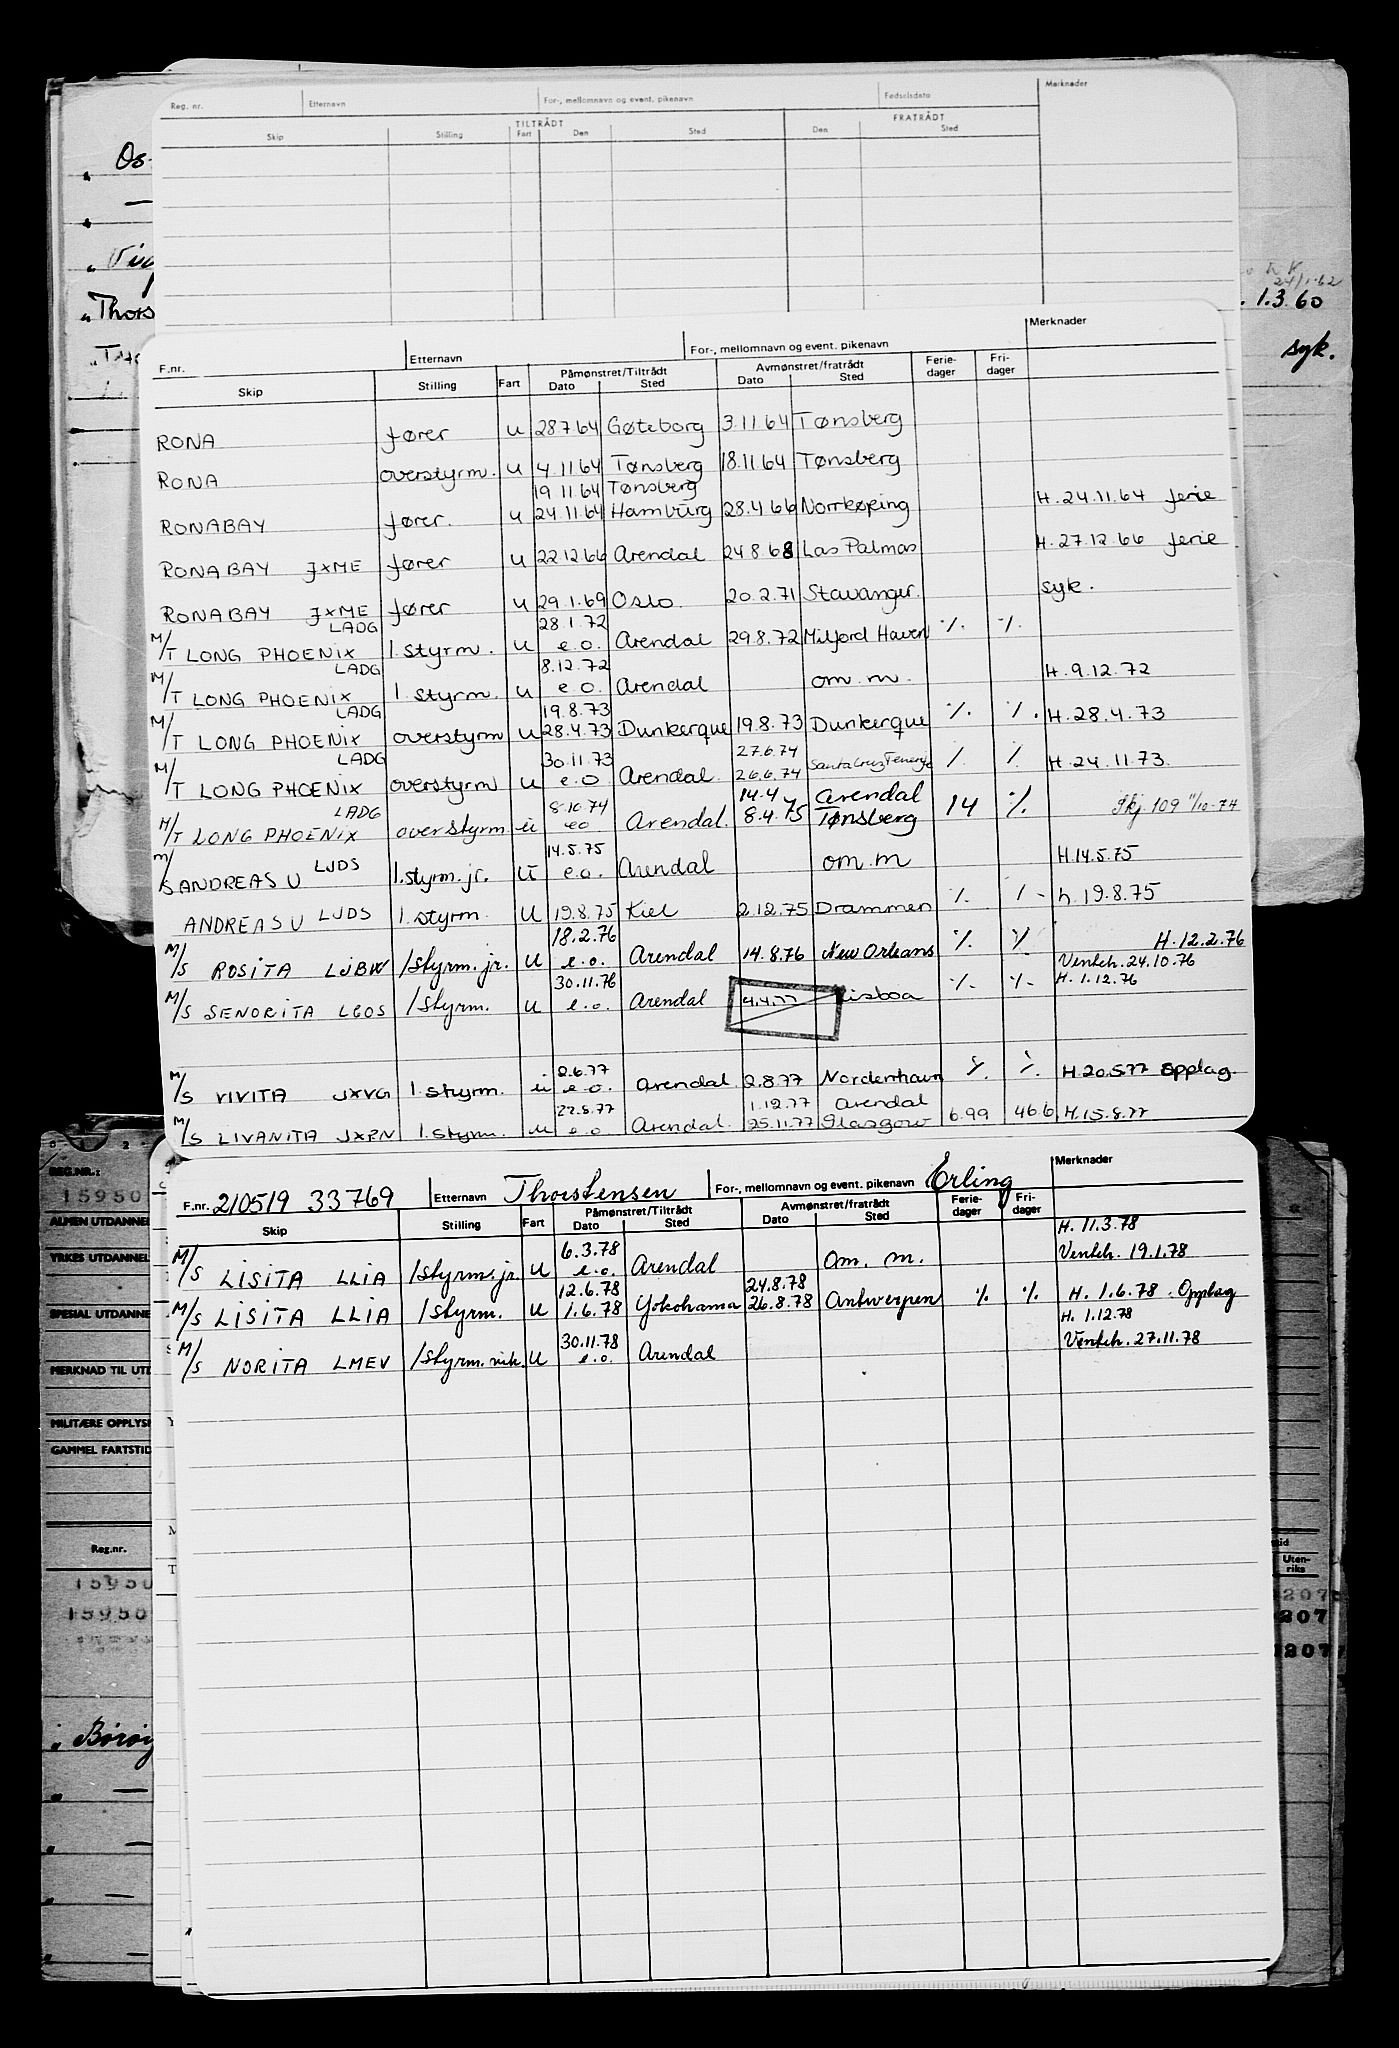 Reg. nr. Etternavn For-, mellomnavn og event. pikenavn Fødselsdato Merknader
TILTRÅDT FRATRÅDT
Skip Stilling Fart Den Sted Den Sted
24/1-62
1.3.60
syk.
Merknader
F.nr. Etternavn For-, mellomnavn og event. pikenavn
Påmønstret/Tiltrådt Avmønstret/fratrådt Ferie- Fri-
Skip Stilling Fart Dato Sted Dato Sted dager dager
RONA fører u 28.7.64 Gøteborg 3.11.64 Tønsberg
RONA overstyrm. u 4.11.64 Tønsberg 18.11.64 Tønsberg
19.11.64 Tønsberg
RONABAY fører. u 24.11.64 Hamburg 28.4.66 Norrkøping H. 24.11.64 ferie
RONABAY JXME fører u 22.12.66 Arendal 24.8.68 Las Palmas H. 27.12.66 ferie
RONABAY JXME fører u 29.1.69 Oslo. 20.2.71 Stavanger. syk.
LADG 28.1.72
M/T LONG PHOENIX 1. styrm. u e.o. Arendal 29.8.72 Milford Haven ٪. ٪.
LADG 8.12.72
M/T LONG PHOENIX 1. styrm. u e.o. Arendal om.m. H. 9.12.72
LADG 19.8.73
M/T LONG PHOENIX overstyrm u 28.4.73 Dunkerque 19.8.73 Dunkerque ٪. ٪. H. 28.4.73
LADG 30.11.73 27.6.74
M/T LONG PHOENIX overstyrm u e.o Arendal. 26.6.74 Santa Cruz Tenerife ٪ ٪ H. 24.11.73.
LADG 8.10.74 14.4 Arendal
M/T LONG PHOENIX overstyrm. u eo Arendal. 8.4.75 Tønsberg 14 ٪. Skj. 109 11/10-74
14.5.75
M/S ANDREAS U LJDS 1.styrm.jr. u e.o. Arendal om.m H.14.5.75
ANDREAS U LJDS 1. styrm. u 19.8.75 Kiel 2.12.75 Drammen ٪. ٪ - h. 19.8.75
18.2.76 H. 12.2.76
M/S ROSITA LJBW 1styrm.jr. u e.o. Arendal 14.8.76 New Orleans ٪. ٪. Ventch. 24.10.76
30.11.76 H. 1.12.76
M/S SENORITA LGOS 1styrm. u e.o. Arendal 4.4.77 Lisboa ٪. ٪.
2.6.77
M/S VIVITA JXVG 1. styrm. u e.o. Arendal. 2.8.77 Nordenham ٪. ٪. H 20.5.77 opplag.
22.8.77 1.12.77 Arendal
M/S LIVANITA JXPN 1.styrm. u e.o Arendal. 25.11.77 Glasgow 6.99 46.6 H.15.8.77
F.nr. 210519 33769 Etternavn Thorstensen For-, mellomnavn og event. pikenavn Erling Merknader
Påmønstret/Tiltrådt Avmønstret/fratrådt Ferie- Fri-
Skip Stilling Fart Dato Sted Dato Sted dager dager
6.3.78 H. 11.3.78
M/S LISITA LLIA 1styrm.jr. u e.o. Arendal om. m. Ventch. 19.1.78
12.6.78 24.8.78
M/S LISITA LLIA 1styrm. u 1.6.78 Yokohama 26.8.78 Antwerpen ٪. ٪. H. 1.6.78. Opplag
30.11.78 H. 1.12.78
M/S NORITA LMEV 1styrm. vik. u e.o. Arendal Ventch. 27.11.78
REG.NR.:
15950
YRKES UTDANNEL
SPESIAL UTDANNE
MERKNAD TIL UTD
MILITÆRE OPPLYS
GAMMEL FARTSTID
Reg.nr.
15950
15950
Uten-
riks
207
207
1207